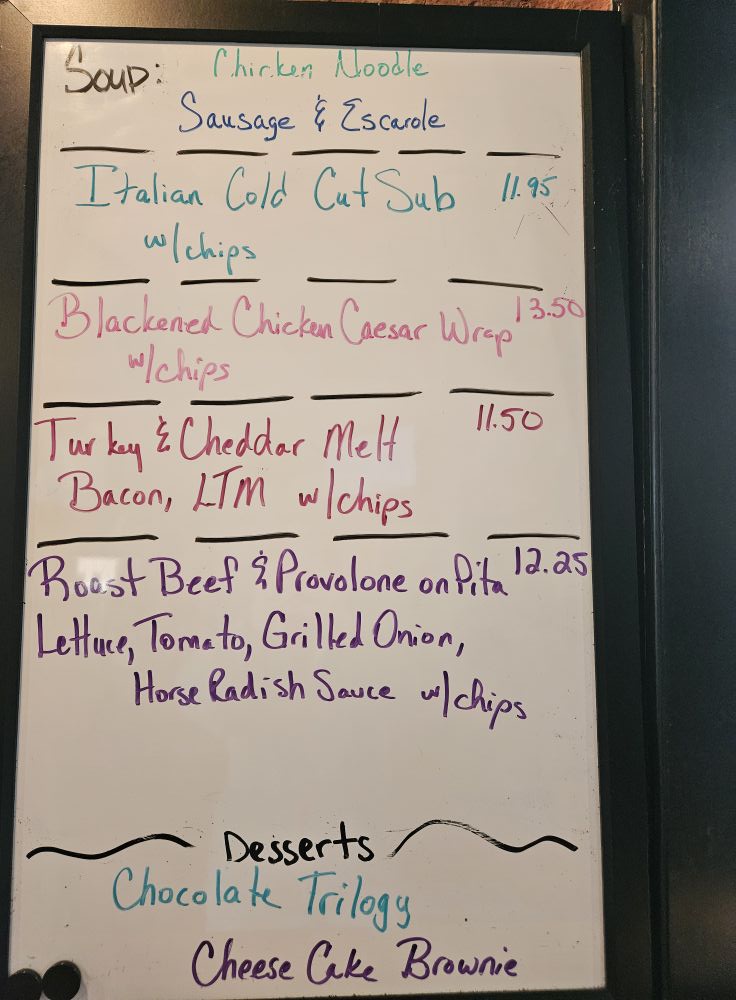 Soup: Chicken Noodle
Sausage & Escarole
Italian Cold Cut Sub 11.95
w/chips
Blackened Chicken Caesar Wrap 13.50
w/chips
Turkey & Cheddar Melt 11.50
Bacon, LTM w/chips
Roast Beef & Provolone on Pita 12.25
Lettuce, Tomato, Grilled Onion,
Horse Radish Sauce w/chips
Desserts
Chocolate Trilogy
Cheese Cake Brownie